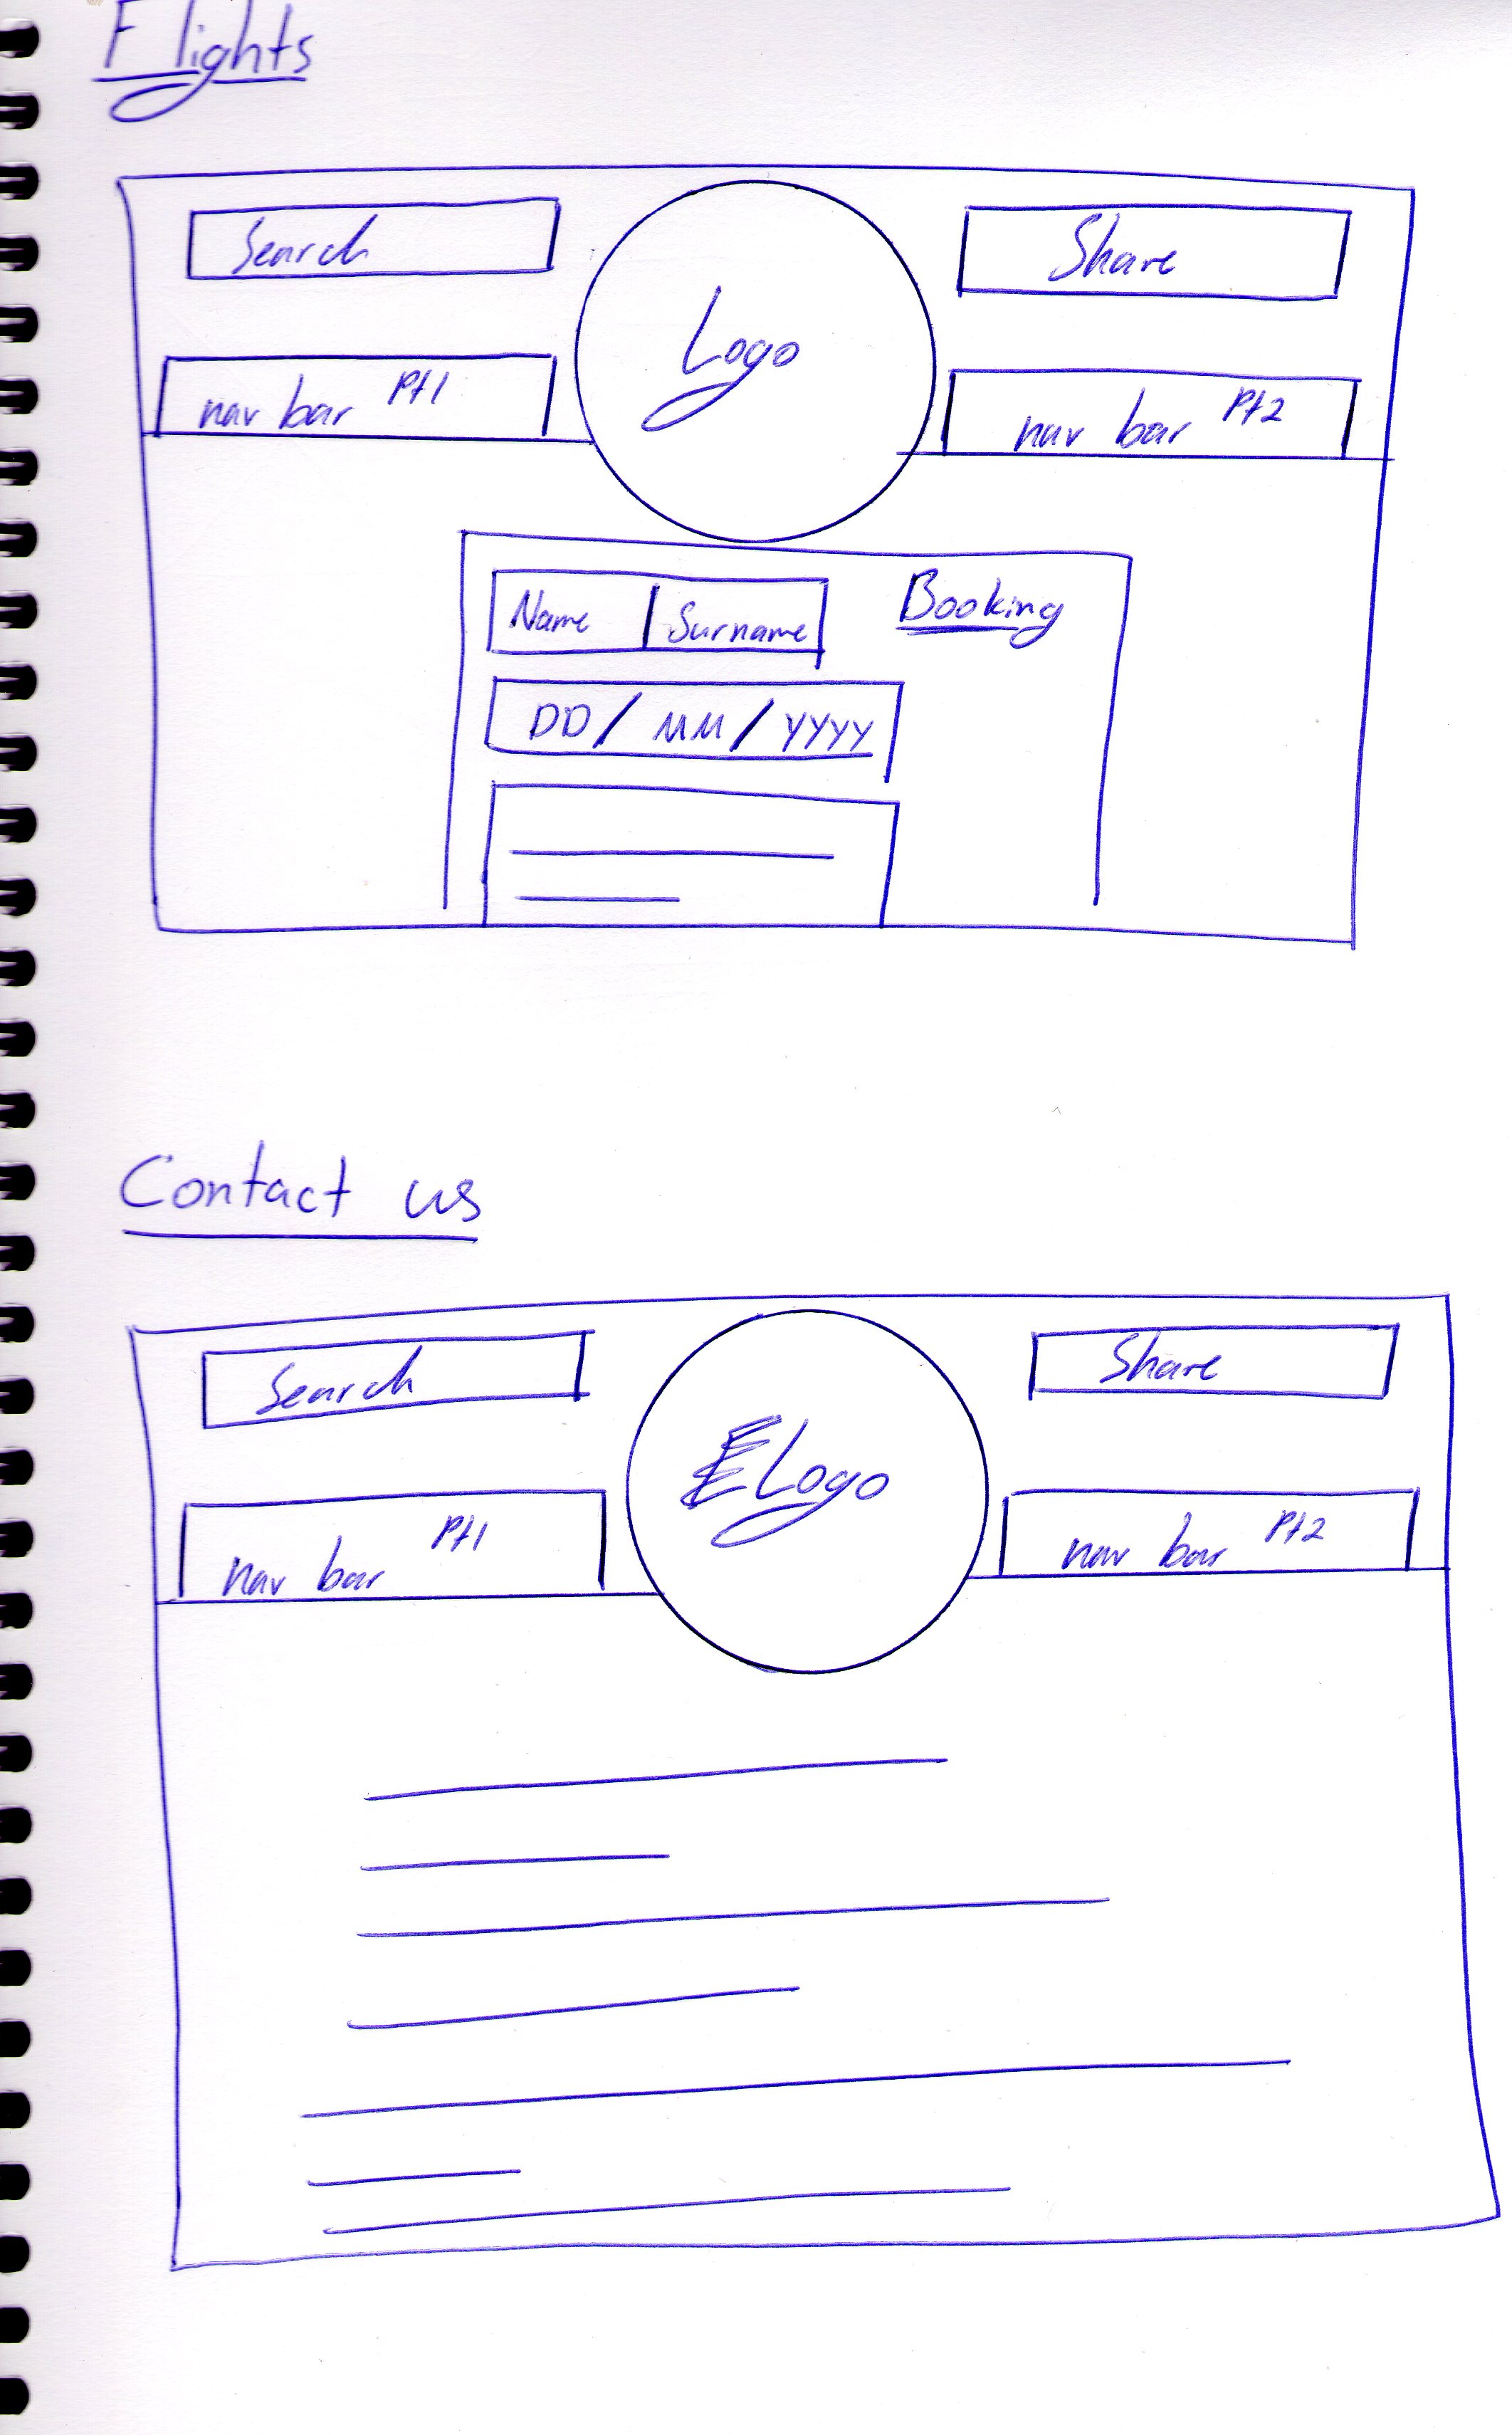 Flights
Search
Share
Logo
nav bar Pt1
nav bar Pt2
Name Surname
Booking
DD / MM / YYYY
Contact us
Search
Share
Logo
nav bar Pt1
nav bar Pt2